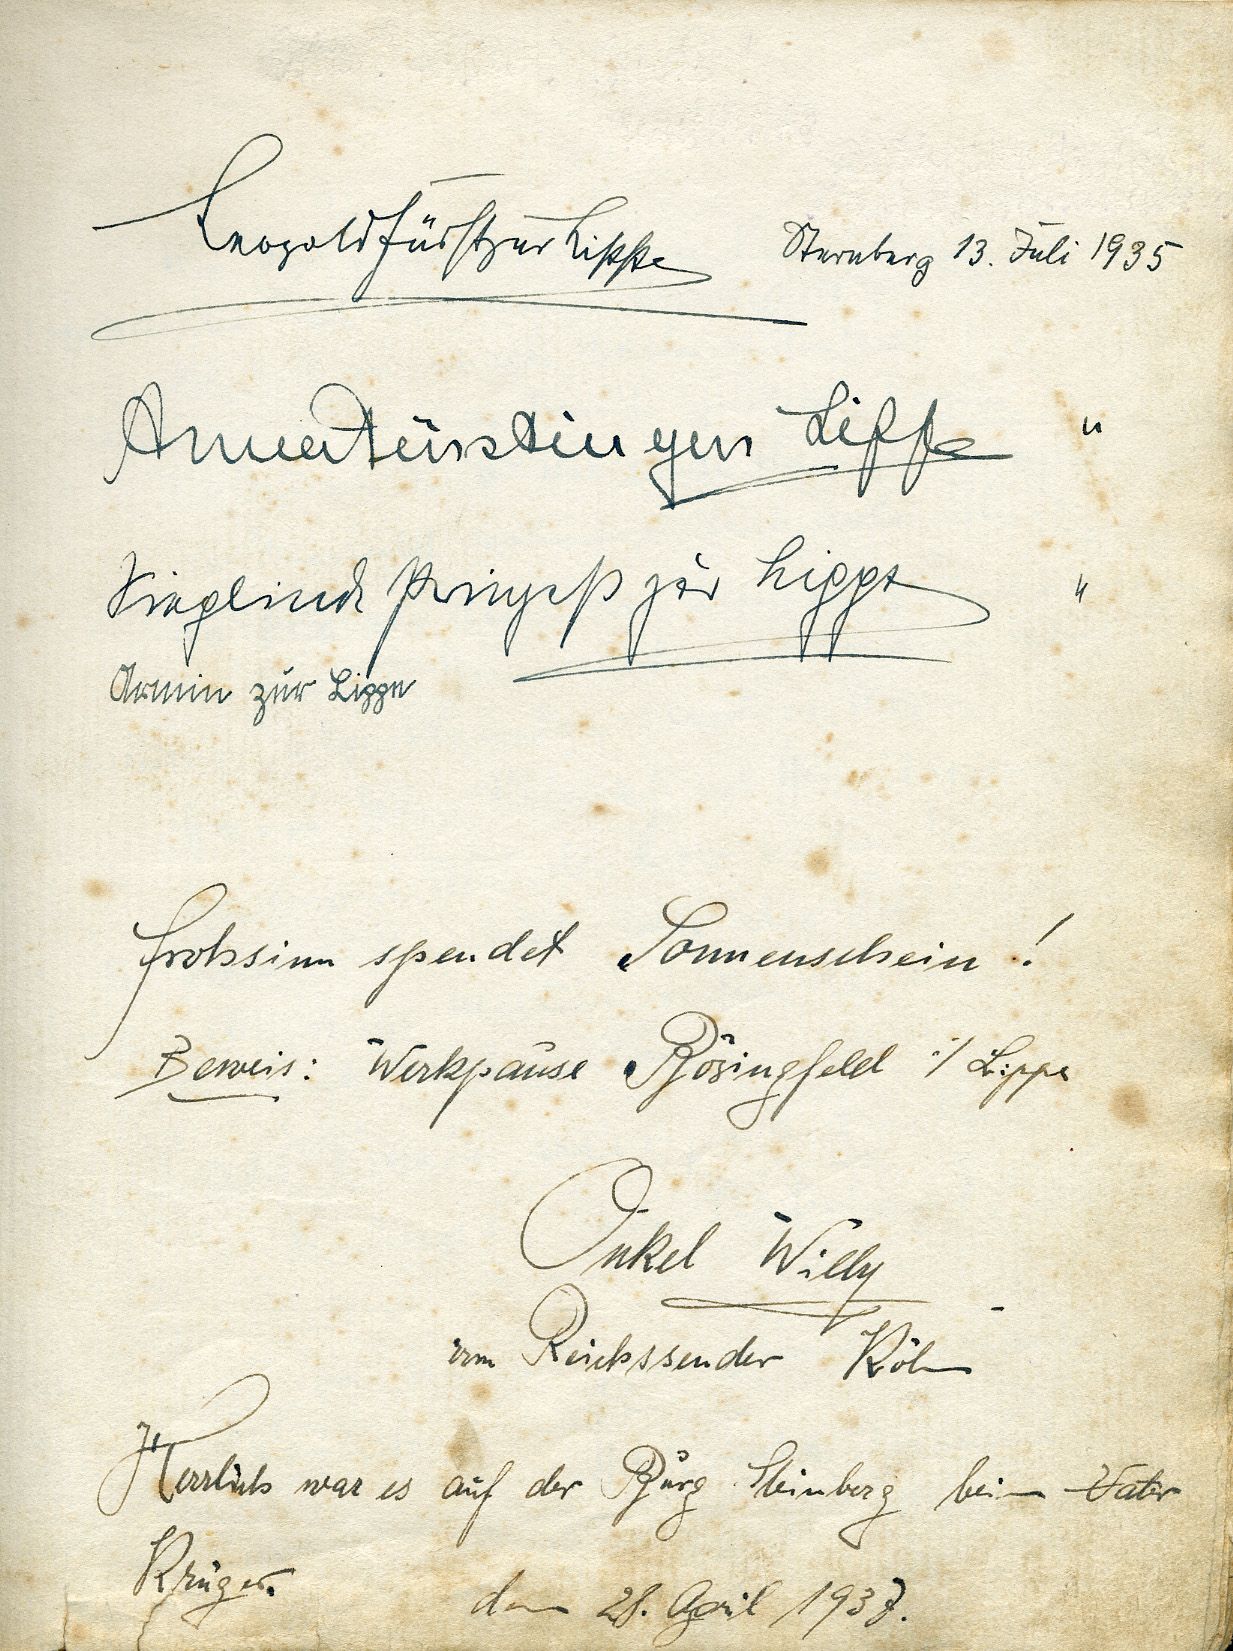 Leopold Fürst zur Lippe Sternberg 13. Juli 1935
Anna Fürstin zur Lippe "
Sieglinde Prinzeß zur Lippe "
Armin zur Lippe
Frohsinn spendet Sonnenschein!
Beweis: Werkpause Bösingfeld i/ Lippe
Onkel Willy
vom Reichssender Köln
Herrlich war es auf der Burg Steinberg beim Vater
Krüger.
den 28. April 1937.